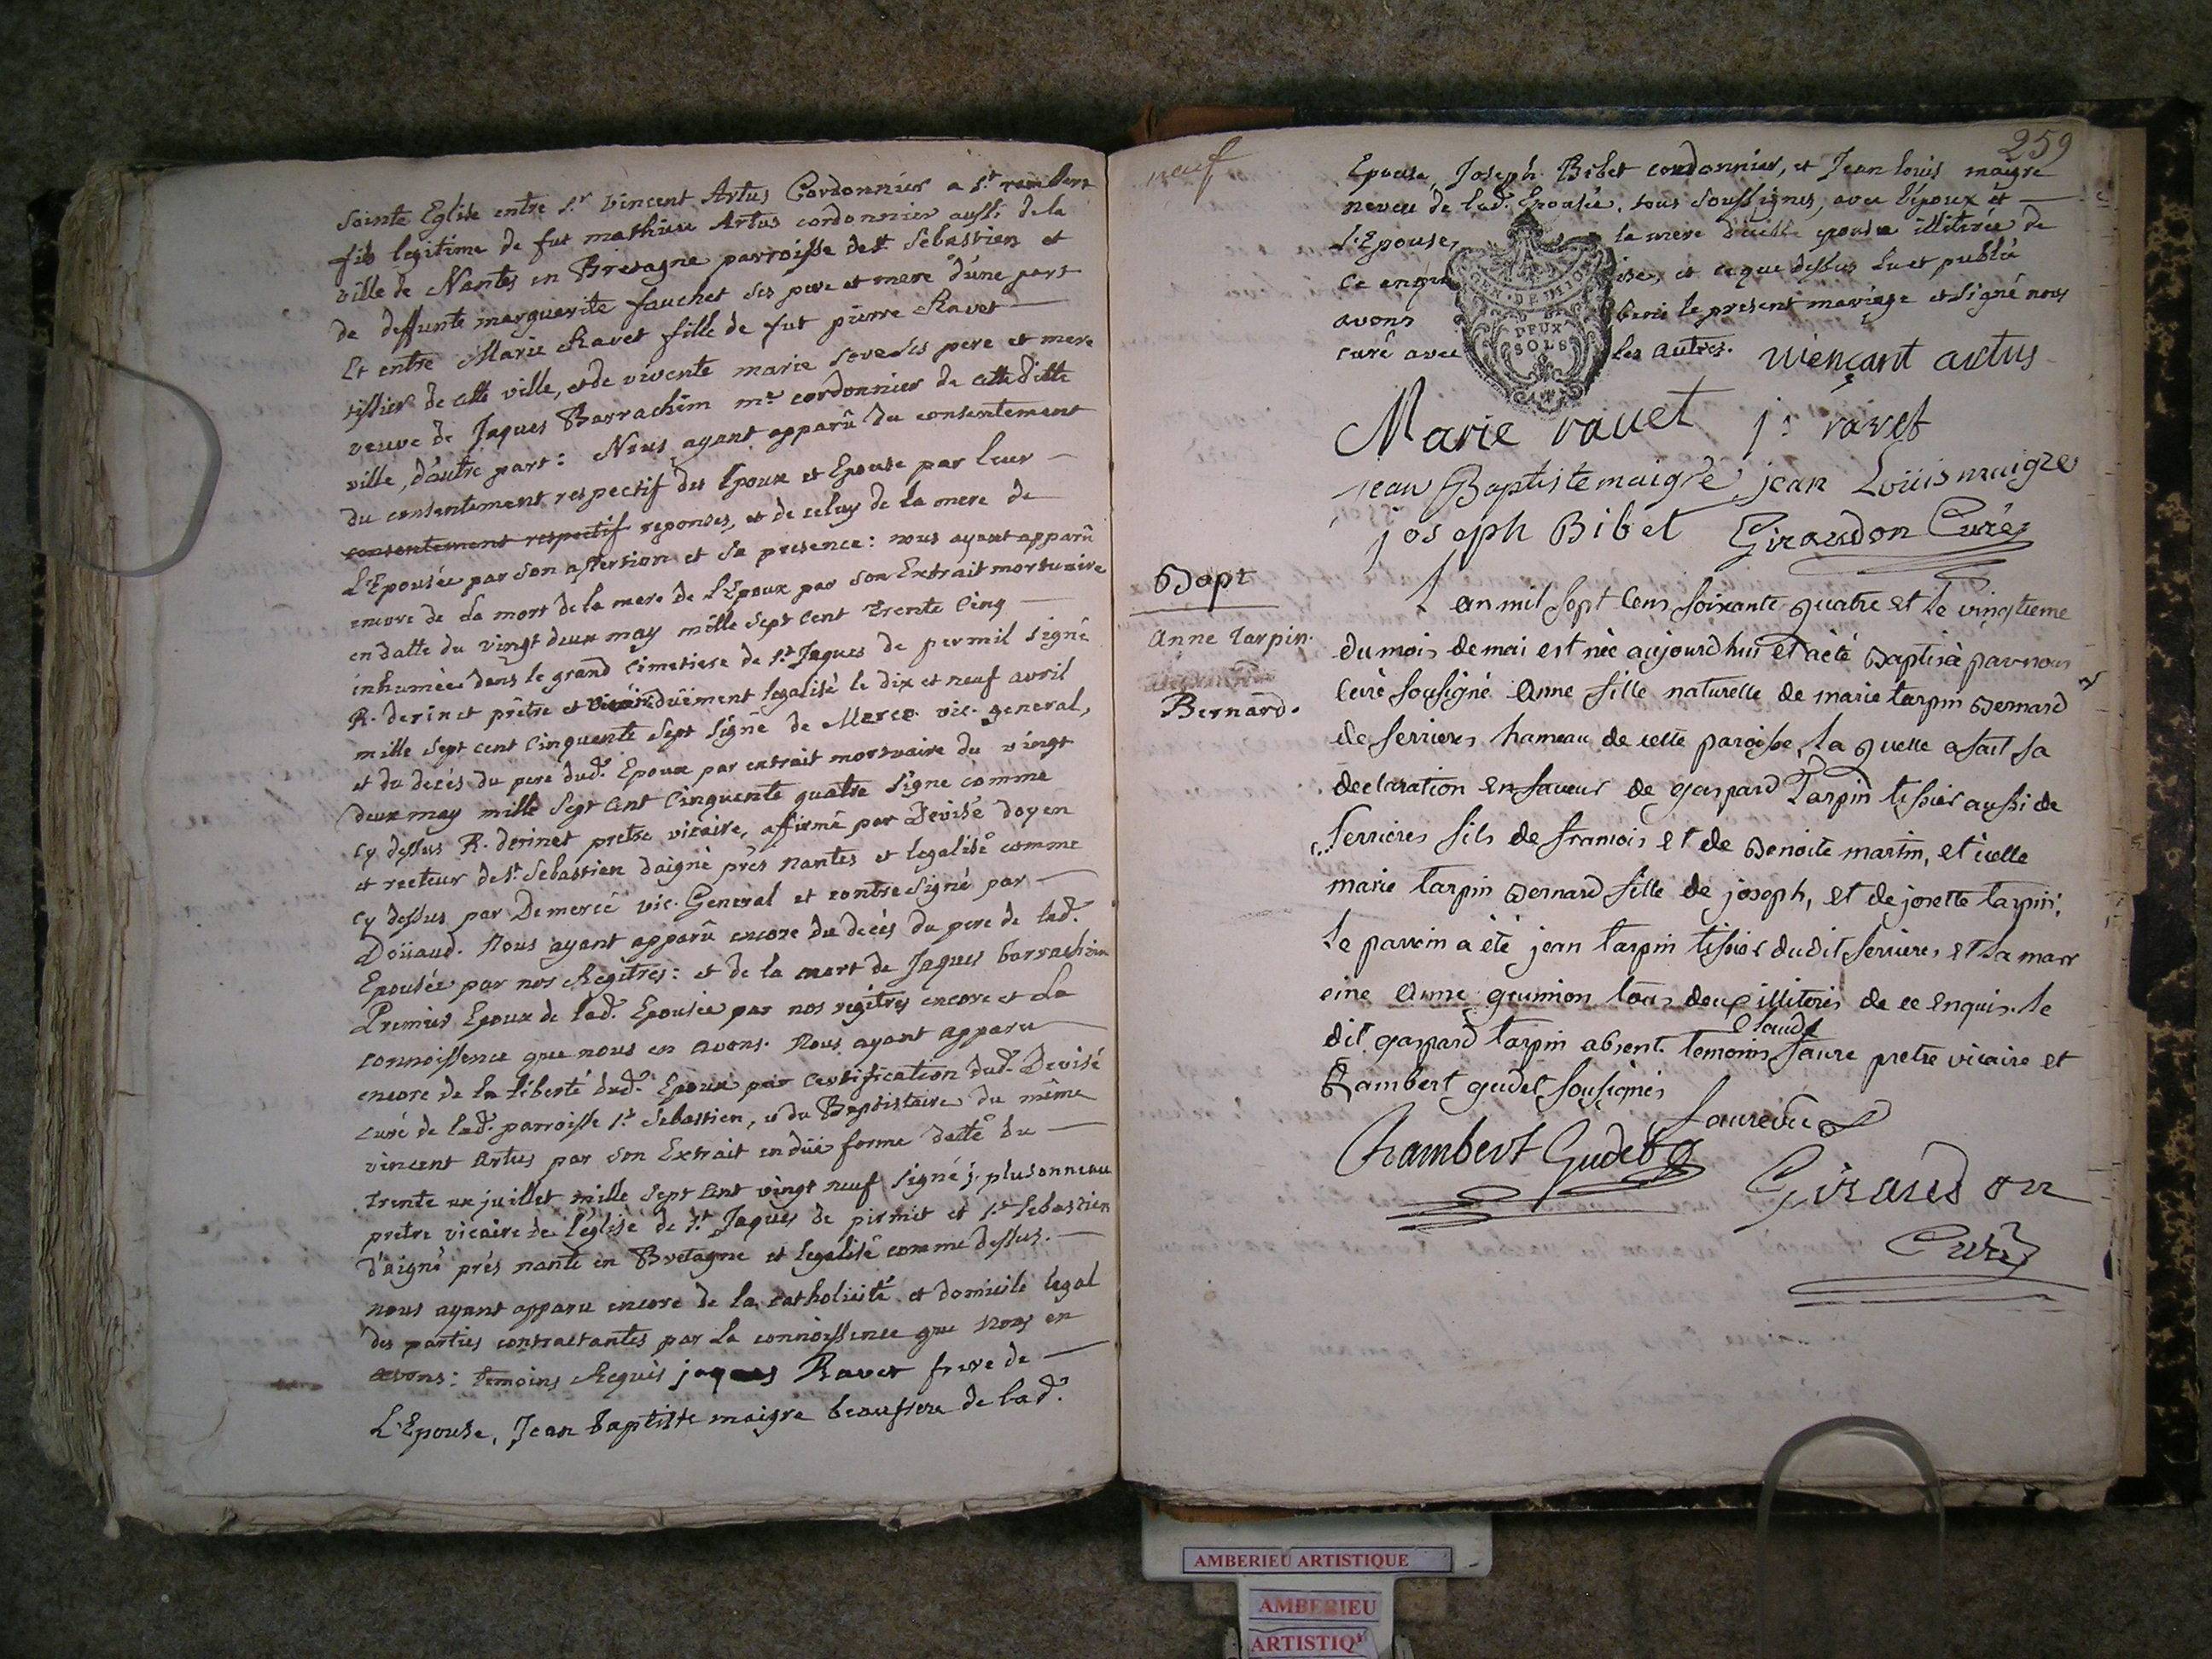 Sainte Eglise entre Sr. Vincent Artus Cordonnier a St. rambert
fils legitime de fut mathieu Artus cordonnier aussi de la
ville de Nantes en Bretagne parroisse de St. Sebastien et
de deffunte marguerite fauchet ses pere et mere d'une part
Et entre Marie Ravet fille de fut pierre Ravet
tissier de cette ville, et de vivente marie ses pere et mere
veuve de Jaques Barrachim me. cordonnier de cette ditte
ville, d'autre part: Nous ayant apparû du consentement
du consentement respectif des Epoux et Epouse par leur
consentement respectif reponses, et de celuy de la mere de
L'Epousée par son assertion et sa presence: nous ayant apparû
encore de la mort de la mere de L'Epoux par son Extrait mortuaire
en datte du vingt deux may mille sept cent trente cinq
inhumée dans le grand Cimetiere de St. Jaques de permil signé
R. derinet prêtre et vicaire düement legalisé le dix et neuf avril
mille sept cent cinquente sept signé de Merce vic. general,
et du decés du pere dud. Epoux par extrait mortuaire du vingt
deux may mille sept cent cinquente quatre signe comme
cy dessus R. derinet pretre vicaire, affirmé par Devisé doyen
et recteur de St. Sebastien daigné près nantes et legalisé comme
cy dessus par Demercé vic. General et contre signé par
Doüaud. Nous ayant apparû encore du decés du pere de lad.
Epousée par nos Regîtres: et de la mort de Jaques barrachim
Premier Epoux de lad. Epousée par nos regîtres encore et la
connoissence que nous en avons. Nous ayant apparu
encore de la liberté dud. Epoux par Certification dud. Devisé
curé de lad. parroisse St. Sebastien, et du Baptistaire du même
vincent Artus par son Extrait en düe forme datté du
trente un juillet mille sept cent vingt neuf signé j. plusonneau
pretre vicaire de l'église de St. Jaques de pirmit et St. Sebastien
d'aigné prés nante en Bretagne et legalisé comme dessus.
nous ayant apparu encore de la catholicité et domicile legal
des parties contractantes par la connoissence que nous en
avons: temoins Requis jaques Ravet frere de
L'Epouse, Jean baptiste maigre beaufrere de lad.
neuf
259
Epouse, Joseph Bibet cordonnier, et Jean louis maigre
neveu de lad. Epousée, tous soussignés, avec l'époux et
L'Epouse, la mere d'icelle epouse illiterée de
ce enquise, et ce que dessus lu et publié
avons beni le present mariage et signé nous
curé avec les autres. viençant artus
GEN. DE DIJON
DEUX
SOLS
Marie rauet j: ravet
jean Baptiste maigre jean Loüis maigre
joseph Bibet Giraudon Curé
Bapt
Anne tarpin
Bernard.
L'an mil sept cens soixante quatre et le vingtieme
du mois de mai est née aujourdhui et a èté Baptisèe par nous
Curè sousigné Anne fille naturelle de marie tarpin Bernard
de serrieres hameau de cette paroisse, la quelle a fait sa
declaration en faveur de gaspard Tarpin tissier aussi de
Serrieres fils de francois et de Benoite martin, et icelle
marie tarpin Bernard fille de joseph, et de josette tarpin,
le parrein a été jean tarpin tissier dudit serrieres et la marr
eine Anne tous deux illiterés de ce enquis. le
dit gaspard tarpin absent. temoins Claude faure pretre vicaire et
Rambert gudet sousignés
faure vic
Chambert Gudet
Giraudon
Curé
AMBERIEU ARTISTIQUE
AMBERIEU
ARTISTIQ